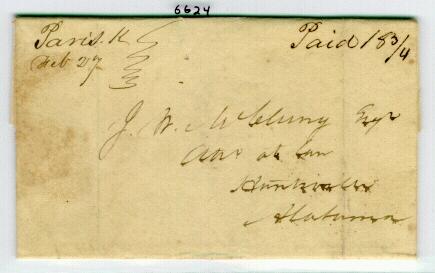 6624
Paris. K
Feb 27
Paid 18 3/4
J. W. McClung Esqr
Att at Law
Huntsville
Alabama